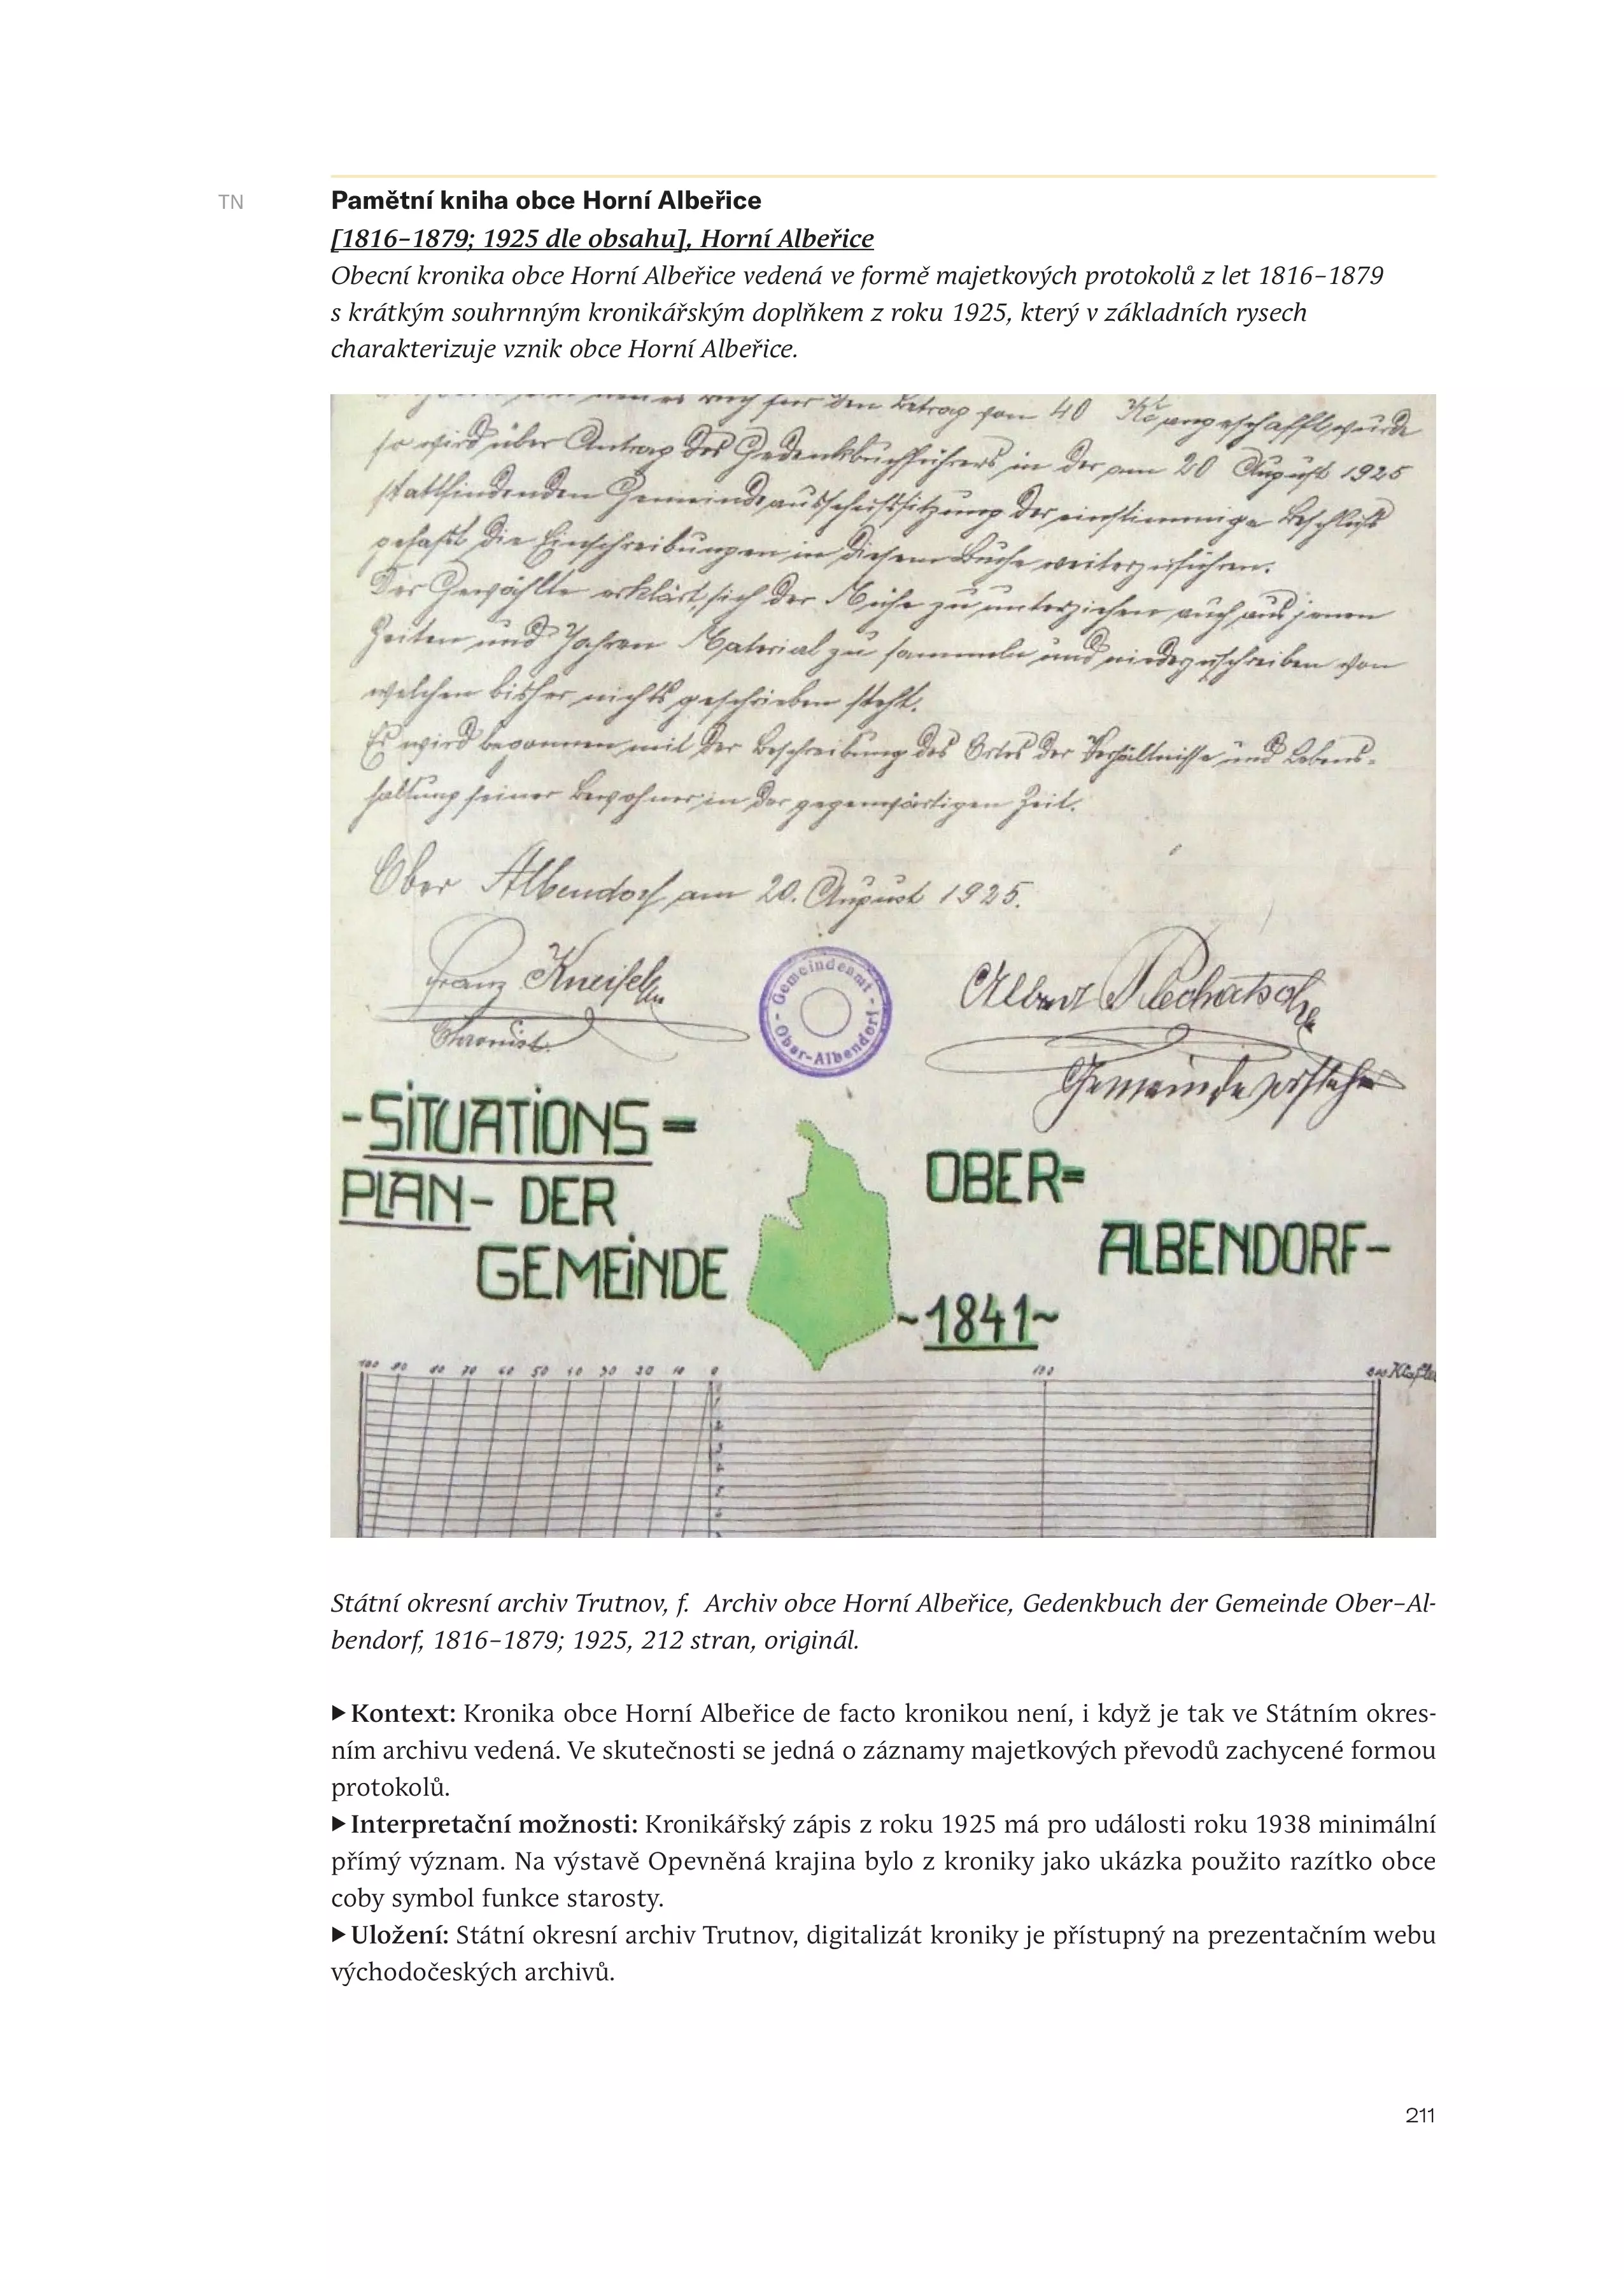 TN
Pamětní kniha obce Horní Albeřice
[1816–1879; 1925 dle obsahu], Horní Albeřice
Obecní kronika obce Horní Albeřice vedená ve formě majetkových protokolů z let 1816–1879
s krátkým souhrnným kronikářským doplňkem z roku 1925, který v základních rysech
charakterizuje vznik obce Horní Albeřice.
für den Betrag von 40 Kč angeschafft wurde
so wird über Antrag des Gedenkbuchführers in der am 20 August 1925
stattfindenden Gemeindeausschußsitzung der einstimmige Beschluß
gefaßt die Einschreibungen in diesem Buche weiterzuführen.
Der Gewählte erklärt, sich der Mühe zu unterziehen auch aus jenen
Zeiten und Jahren Material zu sammeln und niederzuschreiben von
welchen bisher nichts geschrieben steht.
Es wird begonnen mit der Beschreibung des Ortes der Verhältnisse und Lebens-
haltung seiner Bewohner in der gegenwärtigen Zeit.
Ober Albendorf am 20. August 1925.
Franz Kneifel
Chronist.
- Gemeindeamt - Ober-Albendorf
Albert
Gemeindevorsteher
-SITUATIONS=
PLAN- DER
GEMEINDE
OBER=
ALBENDORF-
~1841~
100 90 80 70 60 50 40 30 20 10 0 100 200 Klafter
Státní okresní archiv Trutnov, f. Archiv obce Horní Albeřice, Gedenkbuch der Gemeinde Ober–Al-
bendorf, 1816–1879; 1925, 212 stran, originál.
▶ Kontext: Kronika obce Horní Albeřice de facto kronikou není, i když je tak ve Státním okres-
ním archivu vedená. Ve skutečnosti se jedná o záznamy majetkových převodů zachycené formou
protokolů.
▶ Interpretační možnosti: Kronikářský zápis z roku 1925 má pro události roku 1938 minimální
přímý význam. Na výstavě Opevněná krajina bylo z kroniky jako ukázka použito razítko obce
coby symbol funkce starosty.
▶ Uložení: Státní okresní archiv Trutnov, digitalizát kroniky je přístupný na prezentačním webu
východočeských archivů.
211